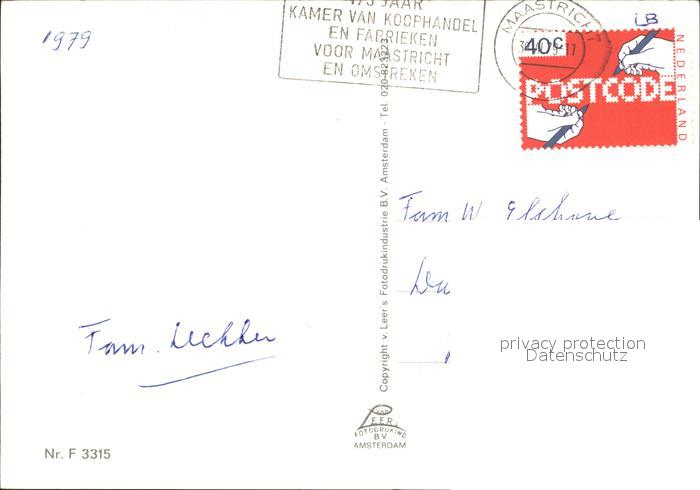 1979
175 JAAR
KAMER VAN KOOPHANDEL
EN FABRIEKEN
VOOR MAASTRICHT
EN OMSTREKEN
MAASTRICHT
LB
40c
POSTCODE
NEDERLAND
Copyright v. Leer's Fotodrukindustrie B.V. Amsterdam - Tel. 020-823223
Fam W
privacy protection
Datenschutz
Fam.
VAN
LEER'S
FOTODRUKIND
B.V.
AMSTERDAM
Nr. F 3315